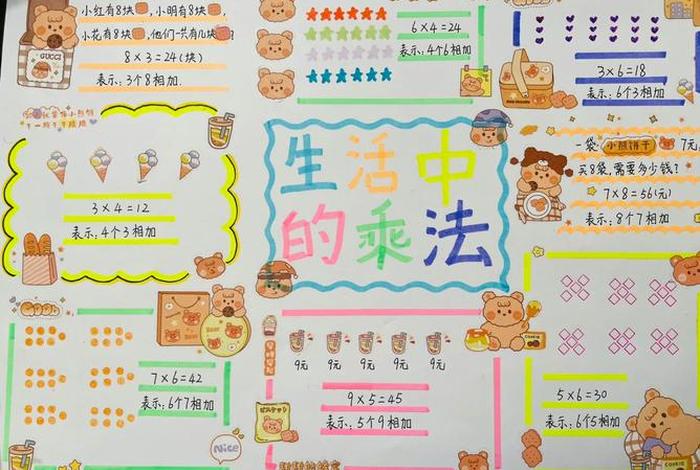 小红有8块,小明有8块,
小花有8块,他们一共有几块?
8×3=24(块)
表示:3个8相加.
GUCCI
6×4=24
表示:4个6相加
3×6=18
表示:6个3相加
3×4=12
表示:4个3相加
生活中
的乘法
一袋 小熊饼干 7元
买8袋,需要多少钱?
7×8=56(元)
表示:8个7相加
7×6=42
表示:6个7相加
Nice
9元 9元 9元 9元 9元
9×5=45
表示:5个9相加
Cookie
5×6=30
表示:6个5相加